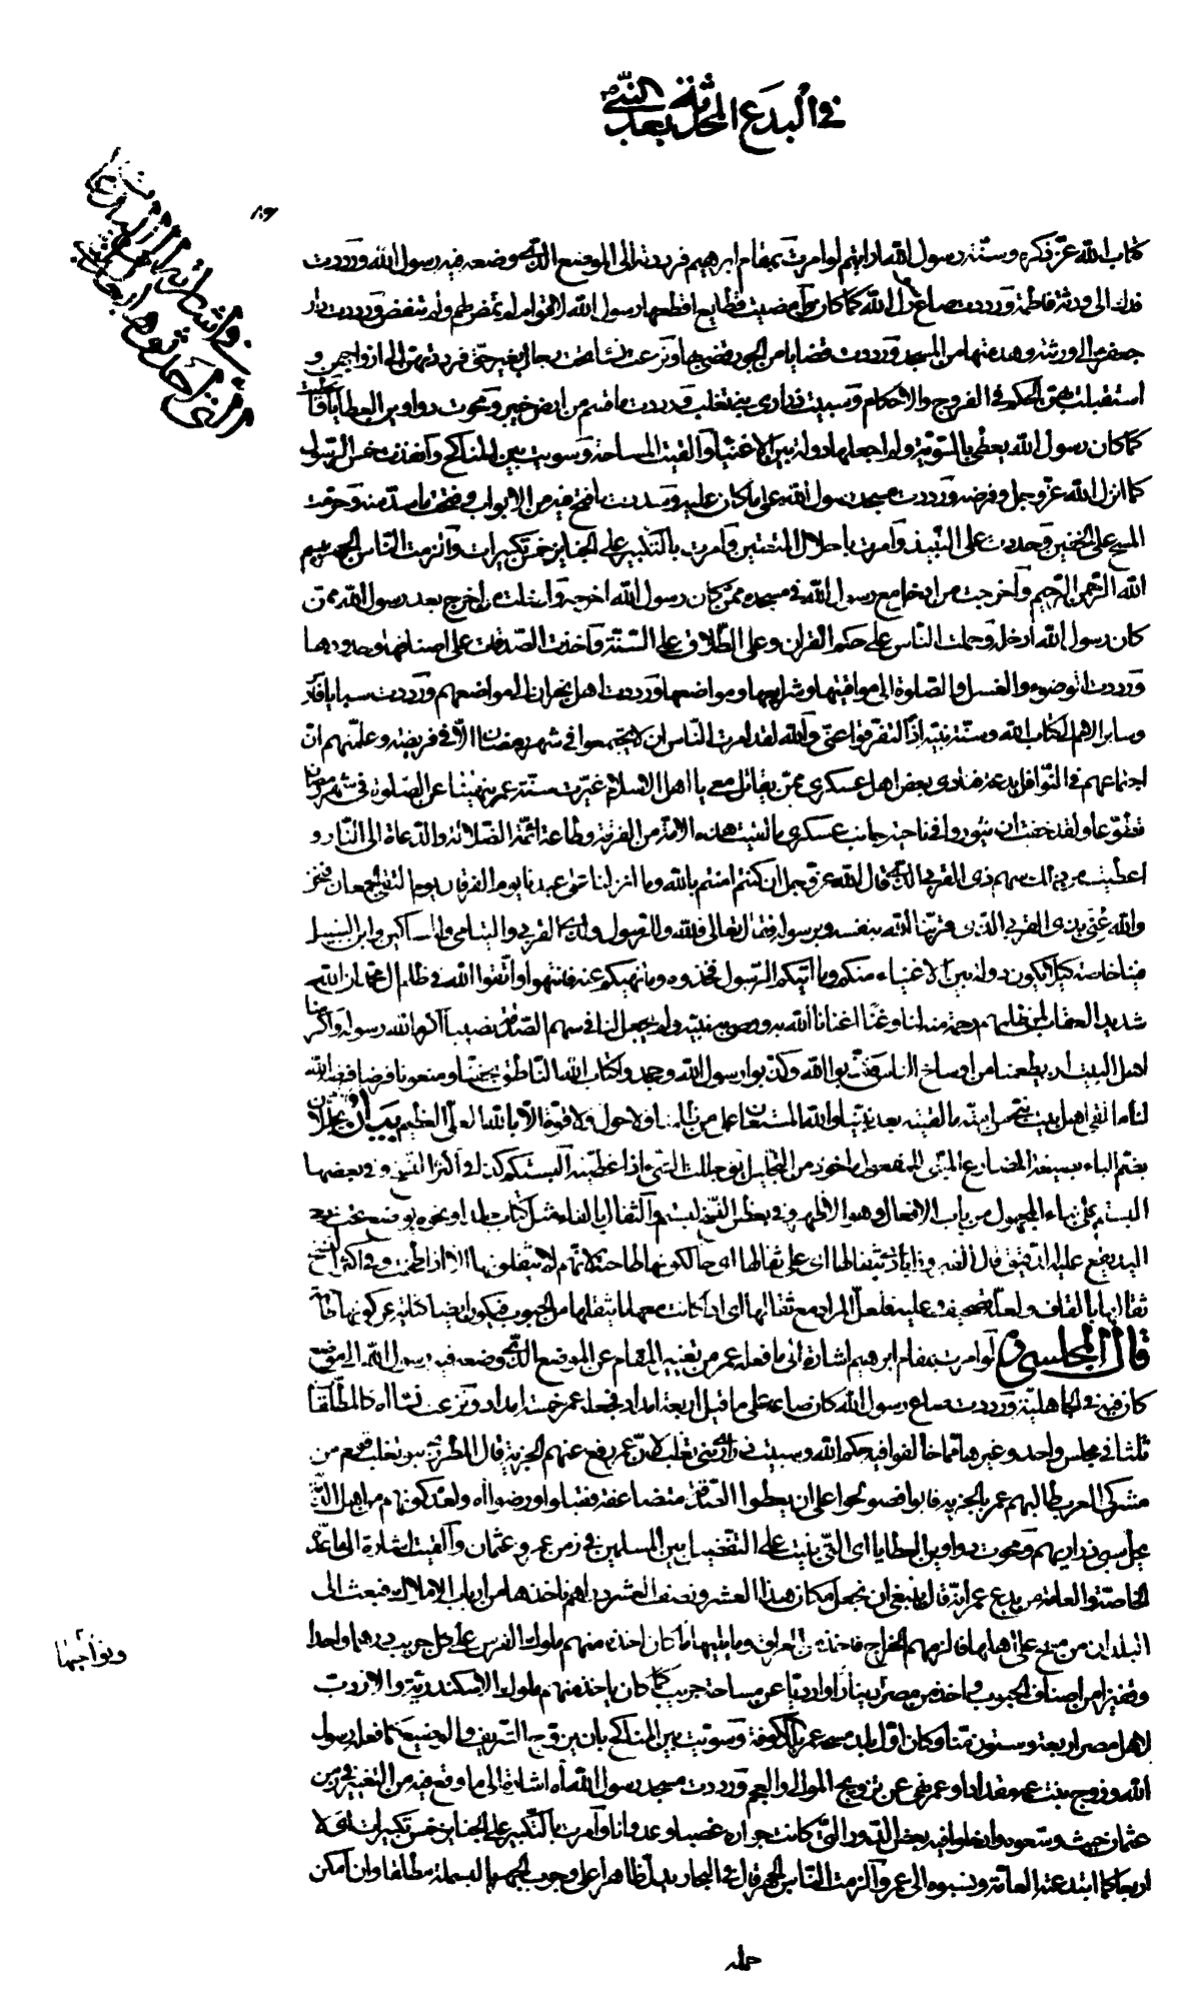 في البدع المحدثة بعد النبي ص
كتاب الله عز ذكره وسنة رسول الله ارايتم لو امرت بمقام ابرهيم فرددته الى الموضع الذي وضعه فيه رسول الله ورددت
فدك الى ورثة فاطمة ورددت صاع رسول الله كما كان وامضيت قطايع اقطعها رسول الله لاقوام لم تمض لهم ولم تنفض ورددت دار
جعفر الى ورثته وهدمتها من المسجد ورددت قضايا من الجور قضى بها ونزعت نساء تحت رجال بغير حق فرددتهن الى ازواجهن و
استقبلت بهن الحكم في الفروج والاحكام وسبيت ذراري بني تغلب ورددت ما قسم من ارض خيبر ومحوت دواوين العطايا واعطيت
كما كان رسول الله يعطي بالسوية ولم اجعلها دولة بين الاغنياء والقيت المساحة وسويت بين المناكح وانفذت خمس الرسول
كما انزل الله عز وجل وفرضه ورددت مسجد رسول الله على ما كان عليه وسددت ما فتح فيه من الابواب وفتحت ما سد منه وحرمت
المسح على الخفين وحددت على النبيذ وامرت باحلال المتعتين وامرت بالتكبير على الجنايز خمس تكبيرات والزمت الناس الجهر ببسم
الله الرحمن الرحيم واخرجت من ادخل مع رسول الله في مسجده ممن كان رسول الله اخرجه وادخلت من اخرج بعد رسول الله ممن
كان رسول الله ادخله وحملت الناس على حكم القران وعلى الطلاق على السنة واخذت الصدقات على اصنافها وحدودها
ورددت الوضوء والغسل والصلوة الى مواقيتها وشرايعها ومواضعها ورددت اهل نجران الى مواضعهم ورددت سبايا فارس
وساير الامم الى كتاب الله وسنة نبيه اذا لتفرقوا عني والله لقد امرت الناس ان لا يجتمعوا في شهر رمضان الا في فريضة وعلمتهم ان
اجتماعهم في النوافل بدعة فنادى بعض اهل عسكري ممن يقاتل معي يا اهل الاسلام غيرت سنة عمر ينهينا عن الصلوة في شهر رمضان
تطوعا ولقد خفت ان يثوروا في ناحية جانب عسكري ما لقيت من هذه الامة من الفرقة وطاعة ائمة الضلالة والدعاة الى النار و
اعطيت من ذلك سهم ذي القربى الذي قال الله عز وجل ان كنتم امنتم بالله وما انزلنا على عبدنا يوم الفرقان يوم التقى الجمعان فنحن
والله عنى بذي القربى الذين قرننا الله بنفسه وبرسوله فقال تعالى فلله وللرسول ولذي القربى واليتامى والمساكين وابن السبيل
فينا خاصة كيلا يكون دولة بين الاغنياء منكم وما اتيكم الرسول فخذوه وما نهيكم عنه فانتهوا واتقوا الله في ظلم ال محمد ان الله
شديد العقاب لمن ظلمهم رحمة منه لنا وغنى اغنانا الله به ووصى به نبيه ولم يجعل لنا في سهم الصدقة نصيبا اكرم الله رسوله واكرمنا
اهل البيت ان يطعمنا من اوساخ الناس فكذبوا الله وكذبوا رسول الله وجحدوا كتاب الله الناطق بحقنا ومنعونا فرضا فرضه الله
لنا ما لقي اهل بيت نبي من امته ما لقيته بعد نبينا والله المستعان على من ظلمنا ولا حول ولا قوة الا بالله العلي العظيم بيان
بضم الباء بصيغة المضارع المبني للمفعول ماخوذ من التجليل يق جللت الشيء اذا غطيته البستكم كذا في اكثر النسخ وفي بعضها
البستم على بناء المجهول من باب الافعال وهو الاظهر وفي بعض النسخ لبستم الثفال بالفاء مثل كتاب جلد او نحوه يوضع تحت
قال المجلسي ره لو امرت بمقام ابرهيم اشارة الى ما فعله عمر من تغيير المقام عن الموضع الذي وضعه فيه رسول الله الى موضع
كان فيه في الجاهلية ورددت صاع رسول الله كان صاعه على ما قيل اربعة امداد فجعله عمر خمسة امداد ونزعت نساء اه كالمطلقات
ثلثا في مجلس واحد وغيرها مما خالفوا فيه حكم الله وسبيت ذراري بني تغلب لان عمر رفع عنهم الجزية قال المطرزي بنو تغلب قوم من
مشركي العرب طالبهم عمر بالجزية فابوا فصولحوا على ان يعطوا الصدقة مضاعفة فقبلوا ورضوا اه ولعدم كونهم من اهل الذمة
يحل سبي ذراريهم ومحوت دواوين العطايا اى التي بنيت على التفضيل بين المسلمين في زمن عمر وعثمان والقيت اشارة الى ما عده
الخاصة والعامة من بدع عمر انه قال ينبغي ان نجعل مكان هذا العشر ونصف العشر دراهم ناخذها من ارباب الاملاك فبعث الى
البلدان من مسح على اهلها فالزمهم الخراج فاخذ من العراق وما يليها ما كان اخذه منهم ملوك الفرس على كل جريب درهما واحدا
وقفيزا من اصناف الحبوب واخذ من مصر دينارا واردبا عن مساحة جريب كما كان ياخذ منهم ملوك الاسكندرية والاردب
لاهل مصر اربعة وستون منا وكان اول بلد مسحه عمر بلد الكوفة وسويت بين المناكح بان يزوج الشريف والوضيع كما فعله رسول
الله وزوج بنت عمه مقدادا وعمر نهى عن تزويج الموالي والعجم ورددت مسجد رسول الله اه اشارة الى ما وقع فيه من التغيير في زمن
عثمان حيث وسعوه وادخلوا فيه بعض الدور التي كانت جواره غصبا وعدوانا وامرت بالتكبير على الجنايز خمس تكبيرات اى لا
اربعا كما ابتدعته العامة ونسبوه الى عمر والزمت الناس الجهر قال في البحار يدل ظاهرا على وجوب الجهر بالبسملة مطلقا وان امكن
ونواحيها
حمله